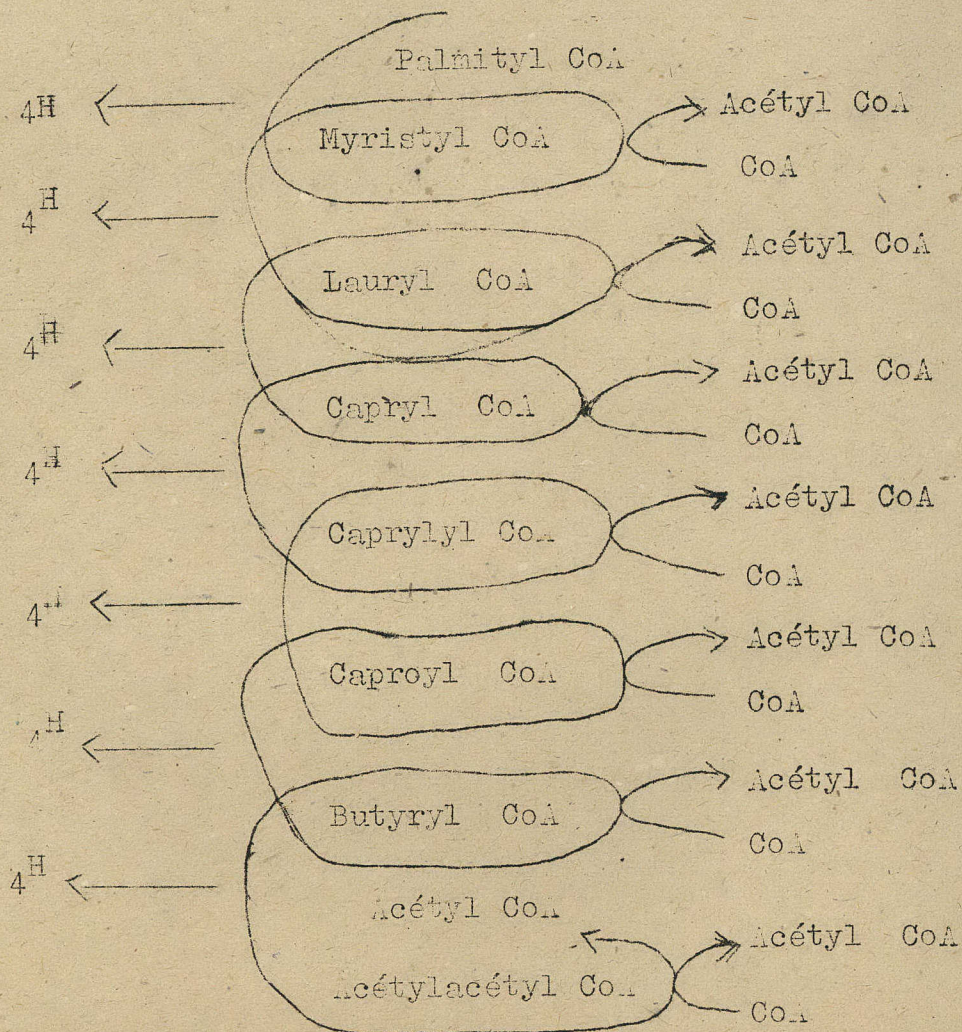 Palmityl CoA
4H
Myristyl CoA
Acétyl CoA
CoA
4H
Lauryl CoA
Acétyl CoA
CoA
4H
Capryl CoA
Acétyl CoA
CoA
4H
Caprylyl CoA
Acétyl CoA
CoA
4H
Caproyl CoA
Acétyl CoA
CoA
4H
Butyryl CoA
Acétyl CoA
CoA
4H
Acétyl CoA
Acétyl CoA
Acétylacétyl CoA
CoA